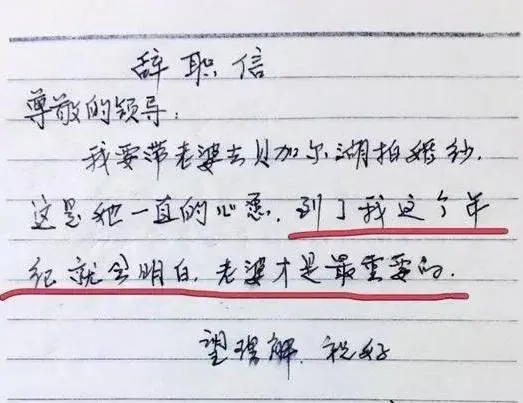 辞职信
尊敬的领导:
我要带老婆去贝加尔湖拍婚纱,
这是她一直的心愿,到了我这个年
纪就会明白,老婆才是最重要的.
望理解,祝好